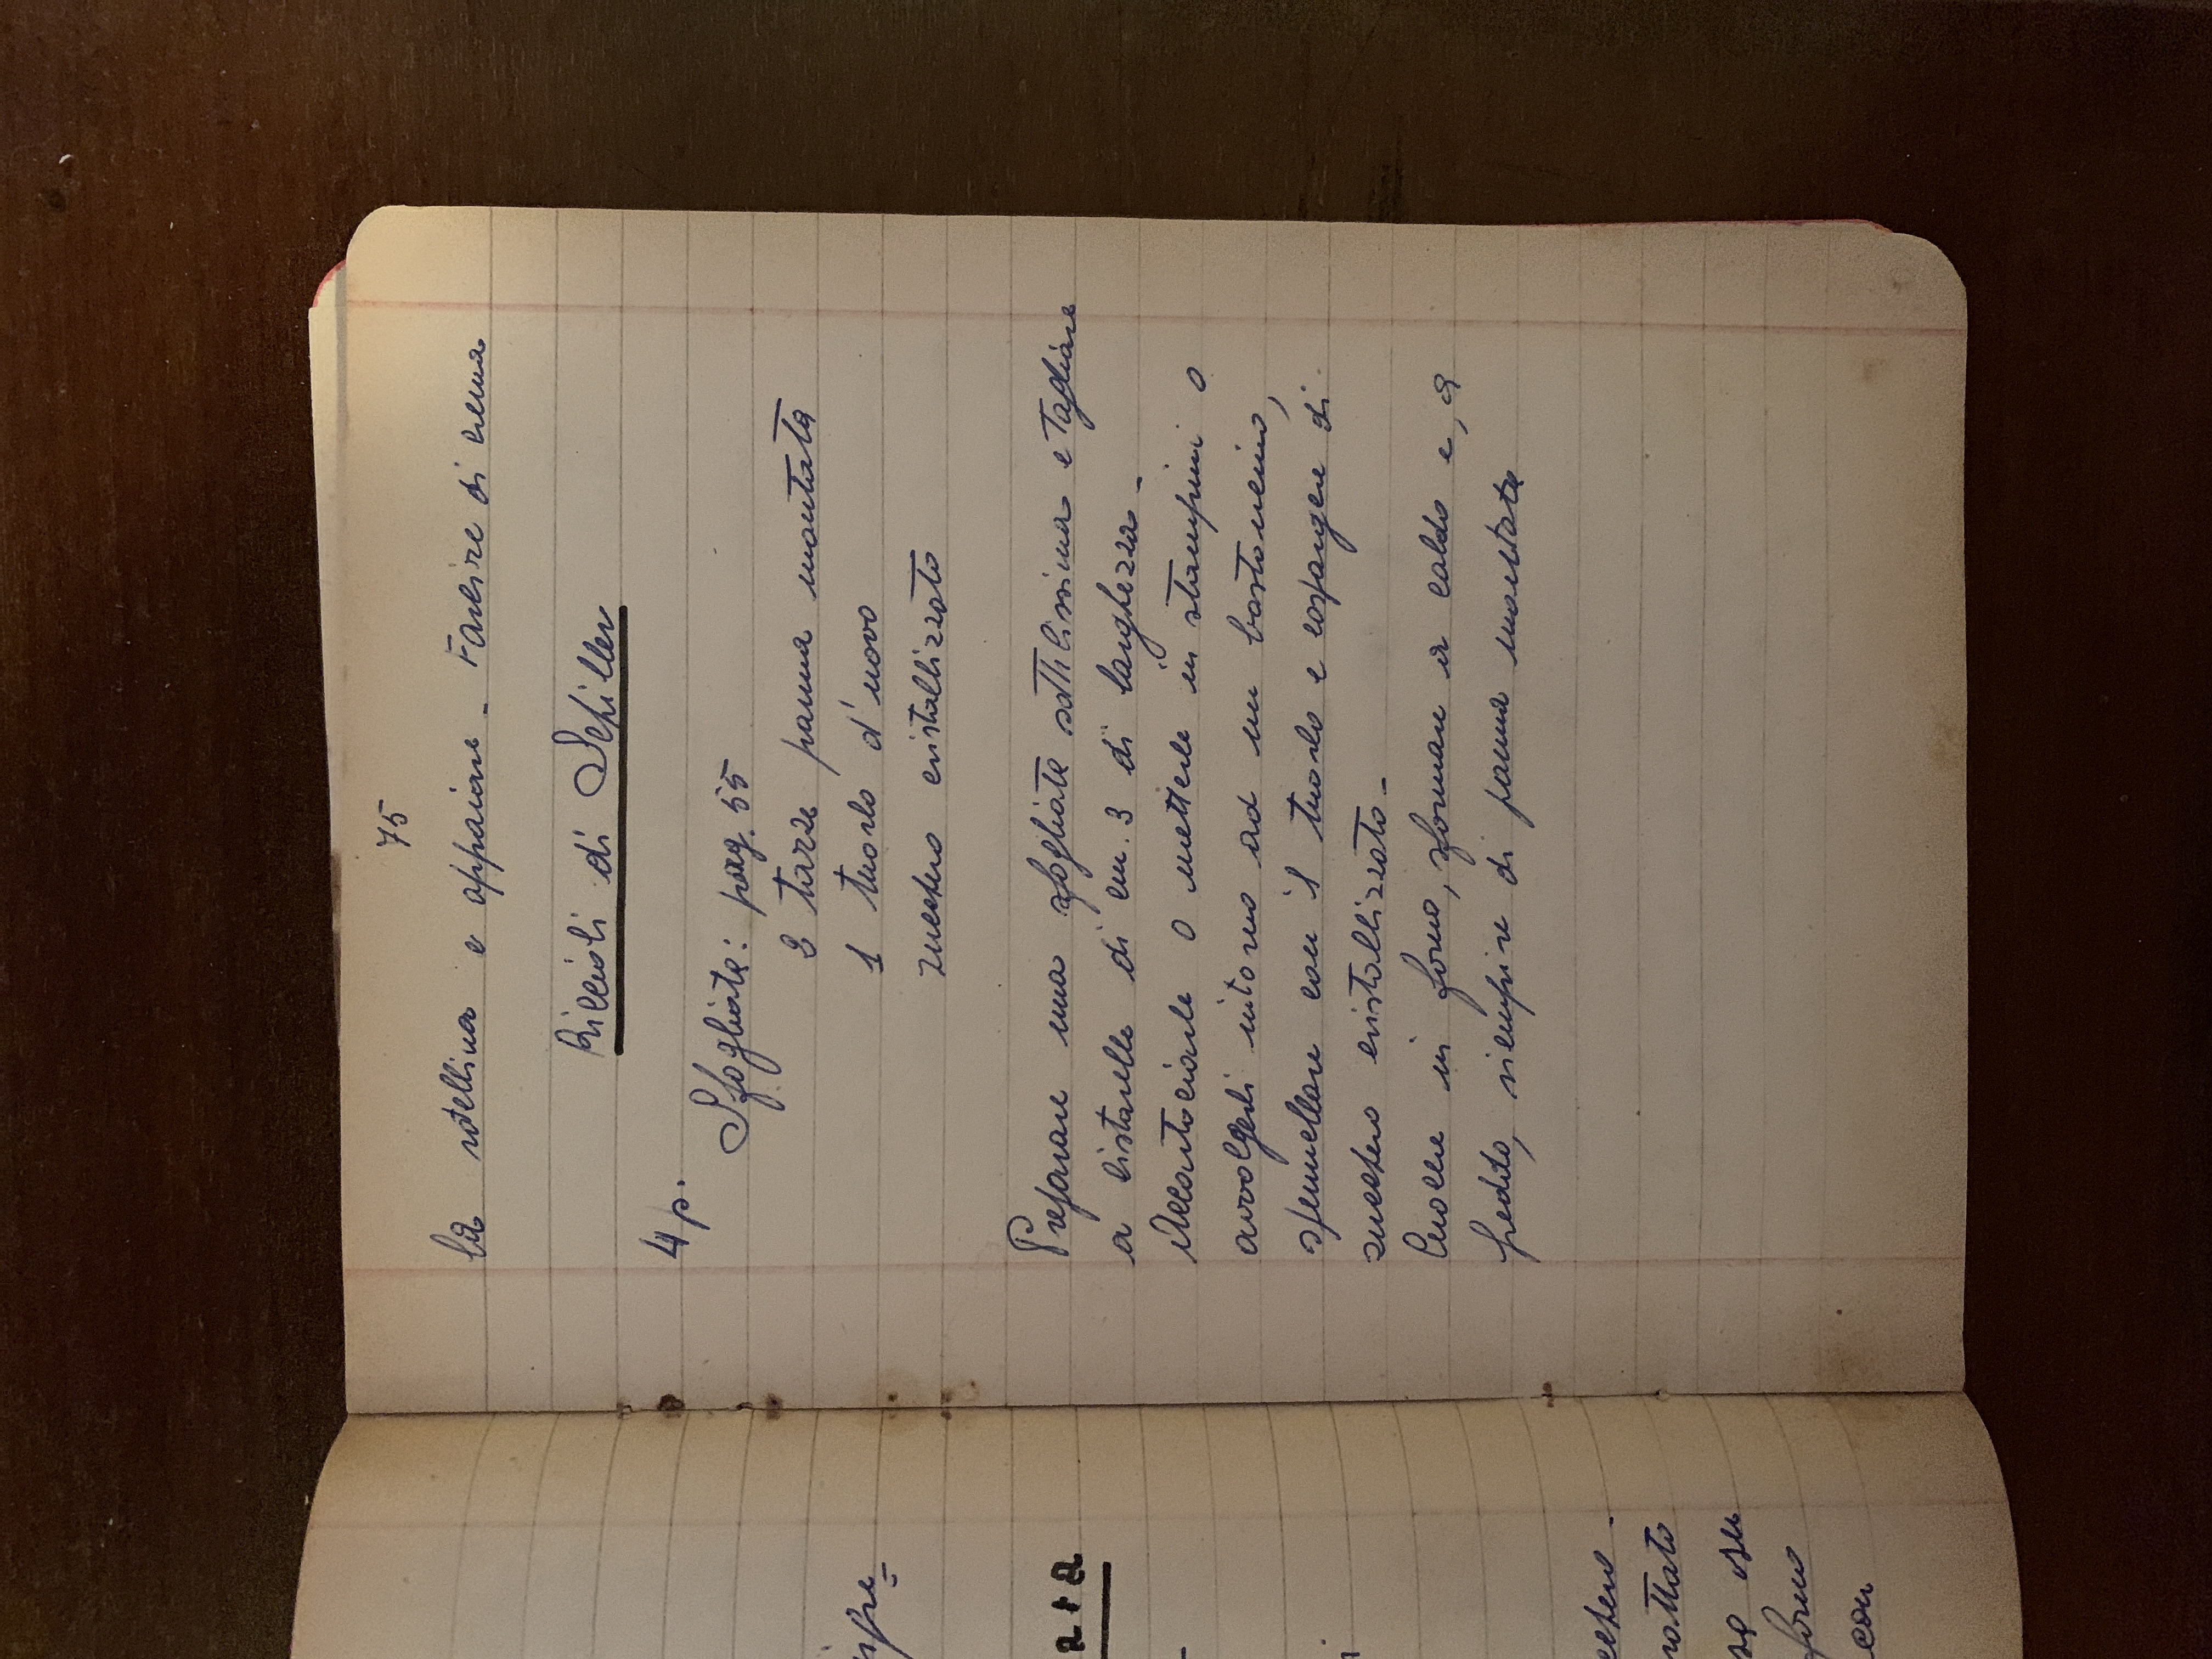 75
la rotellina e appaiare - Farcire di crema
Riccioli di Schiller
4 p.
Sfogliata: pag. 55
2 tazze panna montata
1 tuorlo d'uovo
zucchero cristallizzato
Preparare una sfogliata sottilissima e tagliare
a listarelle di cm. 3 di larghezza -
Accartociarle o metterle in stampini o
avvolgerli intorno ad un bastoncino,
spennellare con il tuorlo e cospargere di
zucchero cristallizzato -
Cuocere in forno, sformare a caldo e, a
freddo, riempire di panna montata
a + a
cchero -
rottato
su
forno
con